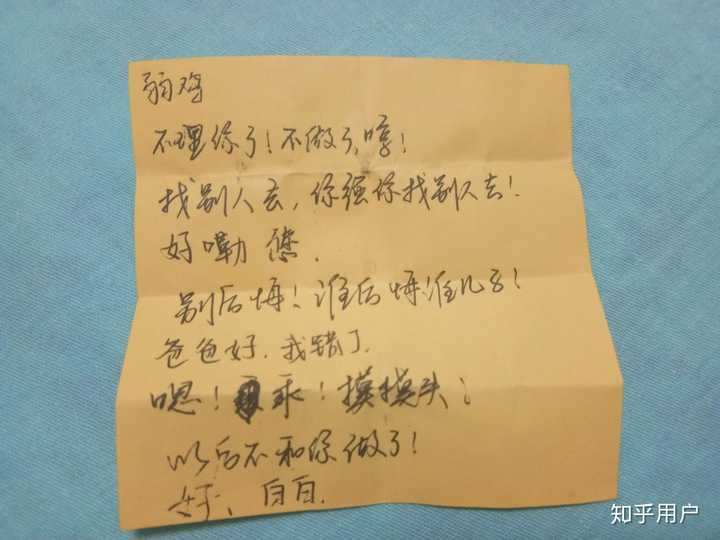 弱鸡
不理你了！不做了，哼！
找别人去，你强你找别人去！
好嘞 您.
别后悔！谁后悔谁儿子！
爸爸好.我错了.
嗯！乖！摸摸头；
以后不和你做了！
好、白白.
知乎用户